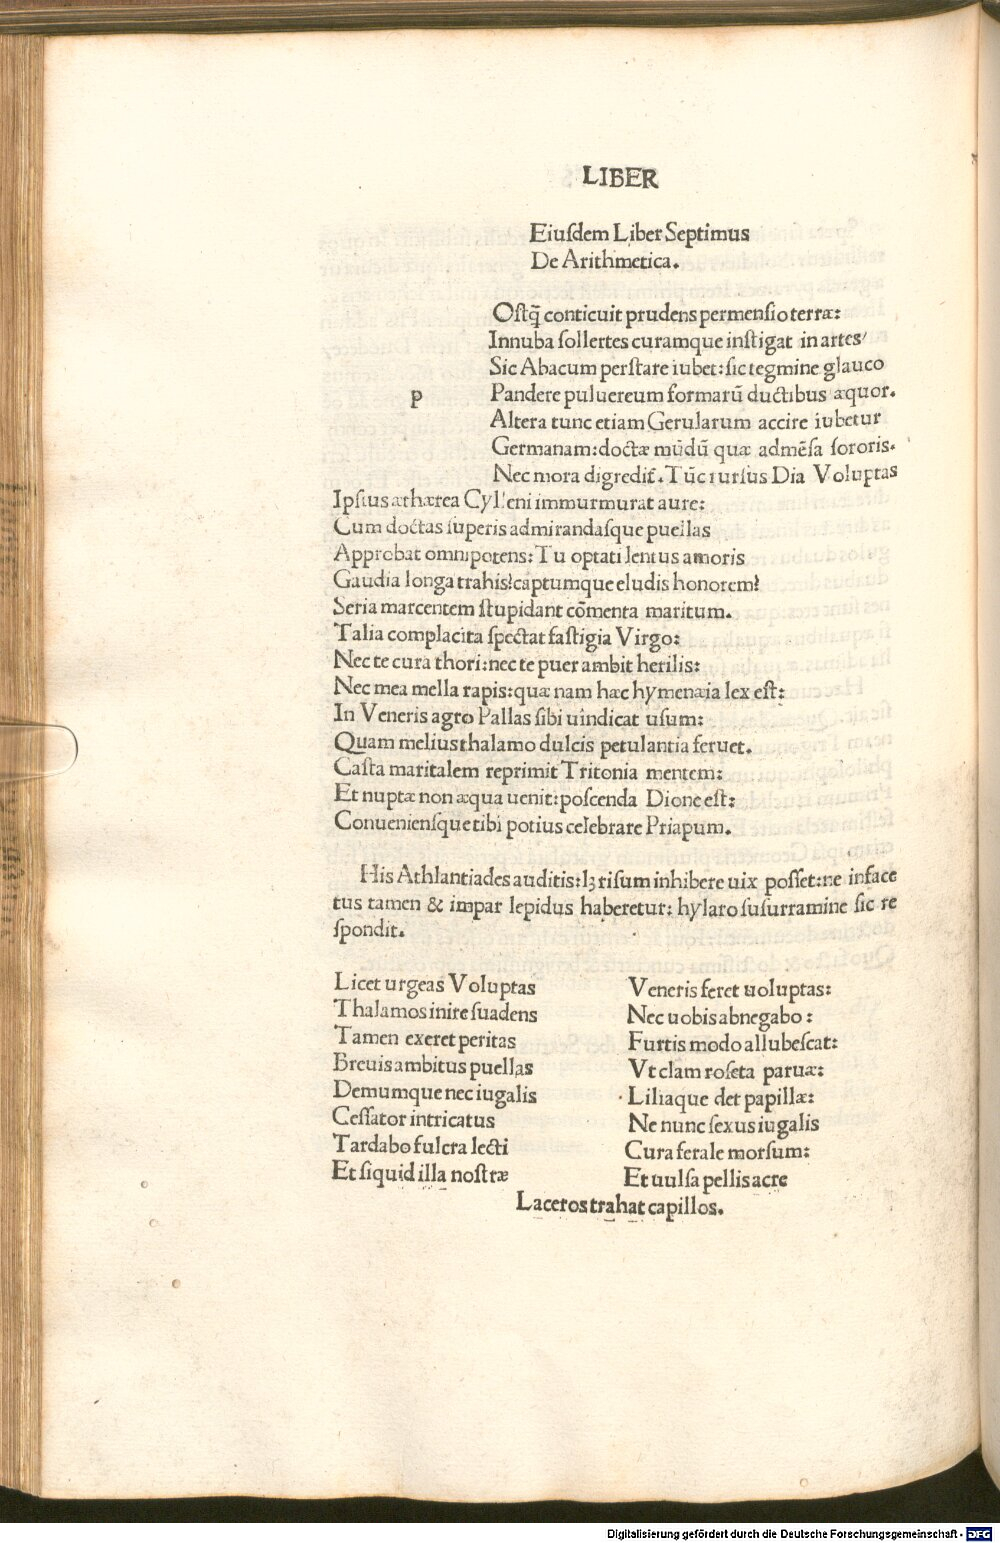 LIBER
Eiuſdem Liber Septimus
De Arithmetica.
p
Oſtq̃ conticuit prudens permenſio terræ:
Innuba ſollertes curamque inſtigat in artes/
Sic Abacum perſtare iubet: ſic tegmine glauco
Pandere puluereum formarũ ductibus æquor.
Altera tunc etiam Gerularum accire iubetur
Germanam: doctæ mũdũ quæ admẽſa ſororis.
Nec mora digredit̃. Tũc rurſus Dia Voluptas
Ipſius æthærea Cylleni immurmurat aure:
Cum doctas ſuperis admirandaſque puellas
Approbat omnipotens: Tu optati lentus amoris
Gaudia longa trahis? captumque eludis honorem?
Seria marcentem ſtupidant cõmenta maritum.
Talia complacita ſpectat faſtigia Virgo:
Nec te cura thori: nec te puer ambit herilis:
Nec mea mella rapis: quæ nam hæc hymenæia lex eſt:
In Veneris agro Pallas ſibi uindicat uſum:
Quam melius thalamo dulcis petulantia feruet.
Caſta maritalem reprimit Tritonia mentem:
Et nuptæ non æqua uenit: poſcenda Dione eſt:
Conuenienſque tibi potius celebrare Priapum.
His Athlantiades auditis: lꝫ riſum inhibere uix poſſet: ne inface
tus tamen & impar lepidus haberetur: hylaro ſuſurramine ſic re
ſpondit.
Licet urgeas Voluptas
Thalamos inire ſuadens
Tamen exeret peritas
Breuis ambitus puellas
Demumque nec iugalis
Ceſſator intricatus
Tardabo fulcra lecti
Et ſiquid illa noſtræ
Veneris feret uoluptas:
Nec uobis abnegabo:
Furtis modo allubeſcat:
Vt clam roſeta paruæ:
Liliaque det papillæ:
Ne nunc ſexus iugalis
Cura ferale morſum:
Et uulſa pellis acre
Laceros trahat capillos.
Digitalisierung gefördert durch die Deutsche Forschungsgemeinschaft - DFG